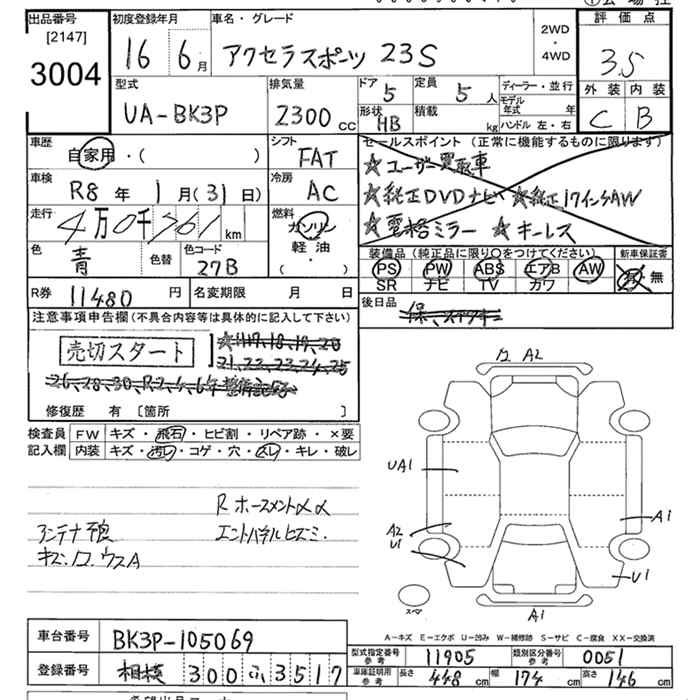 出品番号
[2147]
3004
初度登録年月
16 6月
車名・グレード
アクセラスポーツ 23S
2WD
・
4WD
評価点
3.5
外装 内装
C B
型式
UA-BK3P
排気量
2300 cc
ドア
5
定員
5 人
形状
HB
積載
kg
ディーラー・並行
モデル年式 年
ハンドル 左・右
車歴
自家用・( )
シフト
FAT
車検
R8年 1月(31日)
冷房
AC
走行
4万0千761km
燃料
ガソリン
軽・油
( )
色
青
色替
色コード
27B
R券 11480円
名変期限 月 日
セールスポイント (正常に機能するものに限ります)
☆ユーザー買取車
☆純正DVDナビ ☆純正17インチAW
☆電格ミラー ☆キーレス
装備品 (純正品に限り○をつけてください)
PS PW ABS エアB AW
SR ナビ TV カワ
新車保証書
有・無
後日品
注意事項申告欄 (不具合内容等は具体的に記入して下さい)
売切スタート
☆H17,18,19,20
21,22,23,24,25
26,28,30,R2,4,6年整備記録
修復歴 有 [箇所 ]
検査員 FW キズ・飛石・ヒビ割・リペア跡・×要
記入欄 内装 キズ・汚レ・コゲ・穴・スレ・キレ・破レ
R ホースメント〆〆
アンテナ不良 エンドパネルヒズミ.
キズ.ワ.ウスA
A2
UA1
A2
U1
A1
U1
A1
スペア
A−キズ E−エクボ U−凹み W−補修跡 S−サビ C−腐食 XX−交換済
車台番号 BK3P-105069
登録番号 相模 300 ふ 3517
型式指定番号
参考
11905
類別区分番号
参考
0051
車庫証明用
参考
長さ 448 cm 幅 174 cm 高さ 146 cm